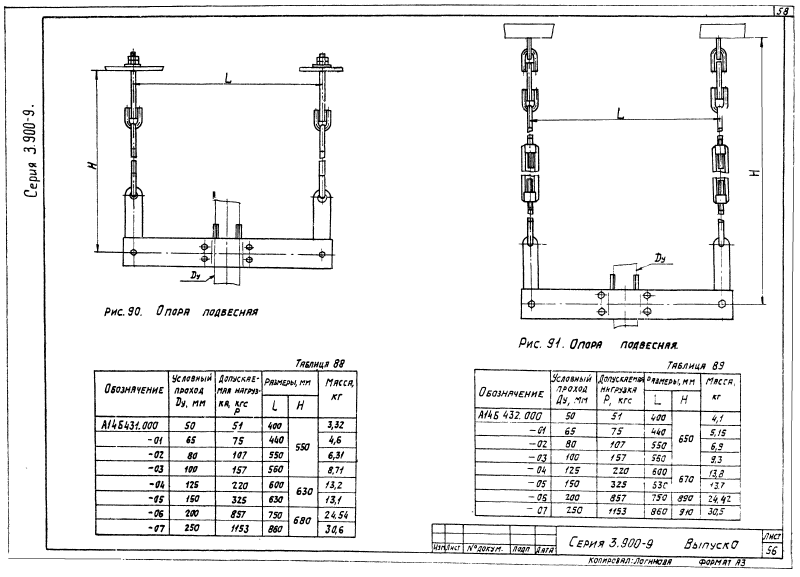 58
Серия 3.900-9.
L
H
Ду
Рис. 90. Опора подвесная
L
H
Ду
Рис. 91. Опора подвесная.
Таблица 88
Обозначение | Условный проход Ду, мм | Допускае-мая нагруз-ка, кгс Р | Размеры, мм L | H | Масса, кг
А14Б431.000 | 50 | 51 | 400 | 550 | 3,32
-01 | 65 | 75 | 440 | 4,6
-02 | 80 | 107 | 550 | 6,31
-03 | 100 | 157 | 560 | 8,71
-04 | 125 | 220 | 600 | 630 | 13,2
-05 | 150 | 325 | 630 | 13,1
-06 | 200 | 857 | 750 | 680 | 24,54
-07 | 250 | 1153 | 860 | 30,6
Таблица 89
Обозначение | Условный проход Ду, мм | Допускаемая нагрузка Р, кгс | Размеры, мм L | H | Масса, кг
А14Б 432.000 | 50 | 51 | 400 | 650 | 4,1
-01 | 65 | 75 | 440 | 5,15
-02 | 80 | 107 | 550 | 6,9
-03 | 100 | 157 | 560 | 9.3
-04 | 125 | 220 | 600 | 670 | 13,8
-05 | 150 | 325 | 530 | 13.7
-06 | 200 | 857 | 750 | 890 | 24,42
-07 | 250 | 1153 | 860 | 910 | 30,5
Изм Лист № докум. Подп Дата
Серия 3.900-9 Выпуск 0
Лист
56
Копировал: Логинова Формат А3